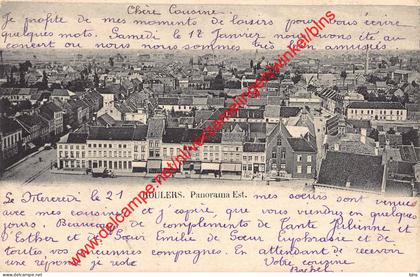 Chère Cousine.
Je profite de mes moments de loisirs pour vous écrire
quelques mots. Samedi le 12 Janvier nous avons eu
concert ou nous nous sommes très bien amusés
www.hinkleywinkel.com
ROULERS. Panorama Est.
Le Mercredi le 21 mes soeurs sont venues
avec mes cousines et j'espère, que vous viendrez en quelques
jours. Beaucoup de complements de Tante Julienne et
d'Esther et de Soeur Emilie de Soeur Euphrasie et de
toutes vos anciennes compagnes. En attendant de recevoir
une réponse je reste Votre cousine
Rachel